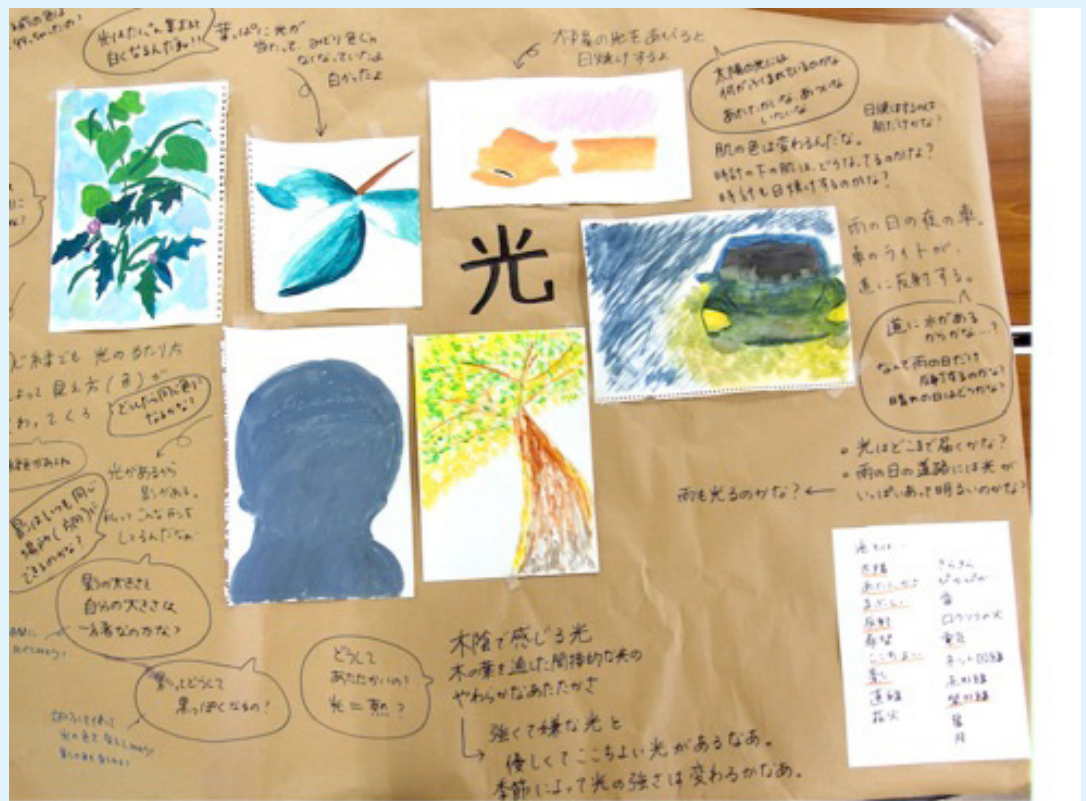 光はたくさん集まると
白くなるんだね!!
葉っぱに光が
当たって、みどり色じゃ
なくなっていた
白かったよ
太陽の光をあびると
日焼けするよ
太陽の光には
何がふくまれているのかな
あたたかいな あついな
いたいな
日焼けするのは
肌だけかな?
肌の色は変わるんだな。
時計の下の肌は、どうなってるのかな?
時計も日焼けするのかな?
光
雨の日の夜の車。
車のライトが、
道に反射する。
道に水がある
からかな…?
なんで雨の日だけ
反射するのかな?
晴れの日はどうかな?
• 光はどこまで届くかな?
• 雨の日の道路には光が
いっぱいあって明るいのかな?
雨も光るのかな?←
緑でも 光のあたり方
よって見え方(色)が
わってくる
どうしたら同じ色に
なるかな?
光があるから
影がある。
してるんだなぁ
影はいつも同じ
場所(方向)に
できるのかな?
影の大きさと
自分の大きさは
一緒なのかな?
影ってどうして
黒っぽくなるの?
どうして
あたたかいの?
光=熱?
木陰で感じる光
木の葉を通した間接的な光の
やわらかなあたたかさ
強くて嫌な光と
優しくてここちよい光があるなあ。
季節によって光の強さは変わるかなあ。
太陽
あたたかさ
まぶしい
反射
希望
ここちよい
影
直線
花火
きらきら
ぴかぴか
雷
ロウソクの火
電気
ネット回線
赤外線
紫外線
星
月